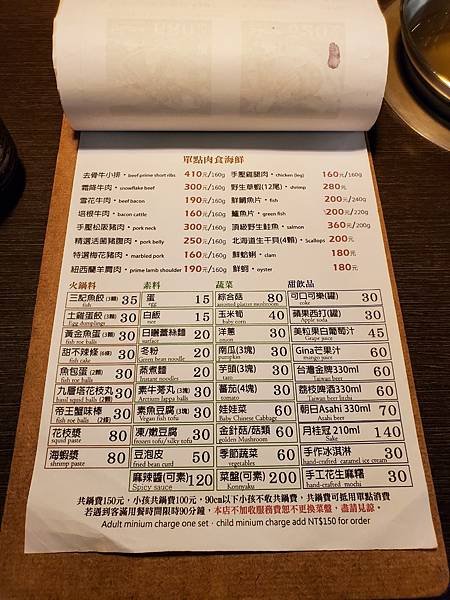 單點肉食海鮮
去骨牛小排・beef prime short ribs 410元/160g 手壓雞腿肉・chicken (leg) 160元/160g
霜降牛肉・snowflake beef 300元/160g 野生草蝦(12尾)・shrimp 280元
雪花牛肉・beef bacon 190元/160g 鮮鯛魚片・fish 200元(240g)
培根牛肉・bacon cattle 160元/160g 鱸魚片・green fish 200元/220g
手壓松阪豬肉・pork neck 300元/160g 頂級野生鮭魚・salmon 360元/200g
精選活菌豬腹肉・pork belly 250元/160g 北海道生干貝(4顆)・Scallops 200元
特選梅花豬肉・marbied pork 160元/160g 鮮蛤蜊・clam 180元
紐西蘭羊肩肉・prime lamb shoulder 190元/160g 鮮蚵・oyster 180元
火鍋料 素料 蔬菜 甜飲品
三記魚餃(3顆) 35 蛋 15 綜合菇 80 可口可樂(罐) 30
fish egg assorted platter mushroom coke
土雞蛋餃(3顆) 30 白飯 15 玉米筍 40 蘋果西打(罐) 30
Egg dumplings rice baby corn Apple soda
黃金魚蛋(3顆) 30 白蘿蔔絲麵 20 洋蔥 30 美粒果白葡萄汁 45
fish roe balls surface onion Grape juice
甜不辣條(6條) 30 冬粉 20 南瓜(3塊) 30 Gina芒果汁 60
fish cake Green bean noodle pumpkin mango juice
魚包蛋(2顆) 30 蒸煮麵 20 芋頭(3塊) 30 台灣金牌330ml 60
fish roe balls Instant noodles taro Taiwan beer
九層塔花枝丸 30 素牛蒡丸(3顆) 30 蕃茄(4塊) 30 荔枝啤酒330ml 60
basil squid balls (2顆) Arctium lappa balls tomato Taiwan beer litchi
帝王蟹味棒 30 素魚豆腐(3顆) 30 娃娃菜 60 朝日Asahi 330ml 70
fish roe balls (2條) Vegan fish tofu Baby Chinese Cabbage Asahi beer
花枝漿 80 凍/嫩豆腐 30 金針菇/菇類 60 月桂冠 210ml 140
squid paste frozen tofu/silky tofu golden Mushroom Sake
海蝦漿 80 豆泡皮 50 季節蔬菜 60 手作冰淇淋 30
shrimp paste fried bean curd vegetables hand-crafted caramel ice cream
麻辣醬(可素) 120 菜盤(可素) 200 手工花生麻糬 30
Spicy sauce Konnyaku hand-crafted mochi
共鍋費150元，小孩共鍋費100元，90cm以下小孩不收鍋費，共鍋費可抵用單點消費
若遇到客滿用餐時間限時90分鐘，本店不加收服務費恕不更換菜盤，盡請見諒。
Adult minium charge one set・child minium charge add NT$150 for order